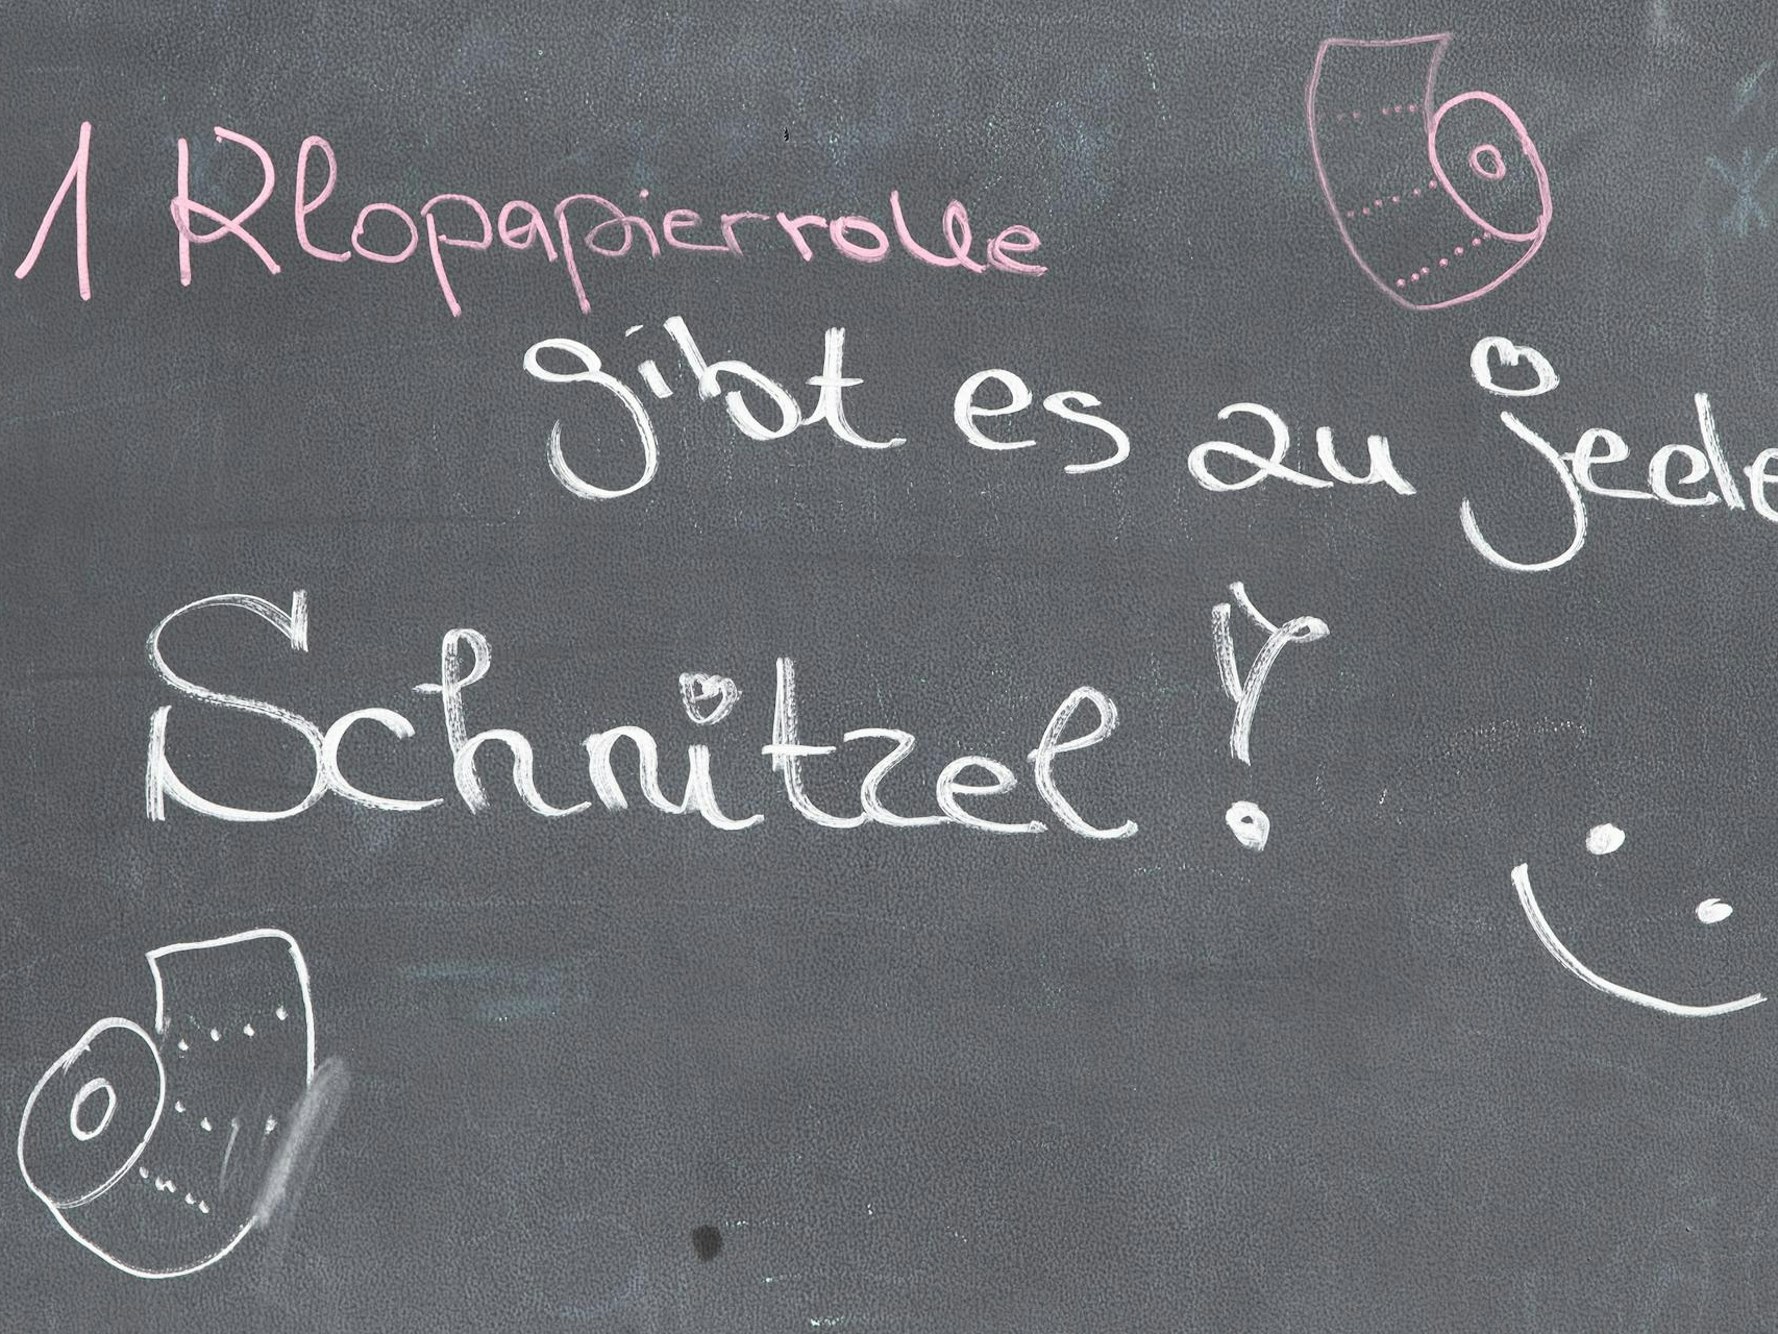 1 Klopapierrolle
gibt es zu jede
Schnitzel!